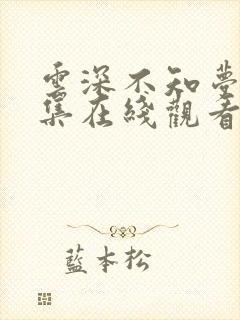 雲深不知夢
集在綫觀看
藍本松